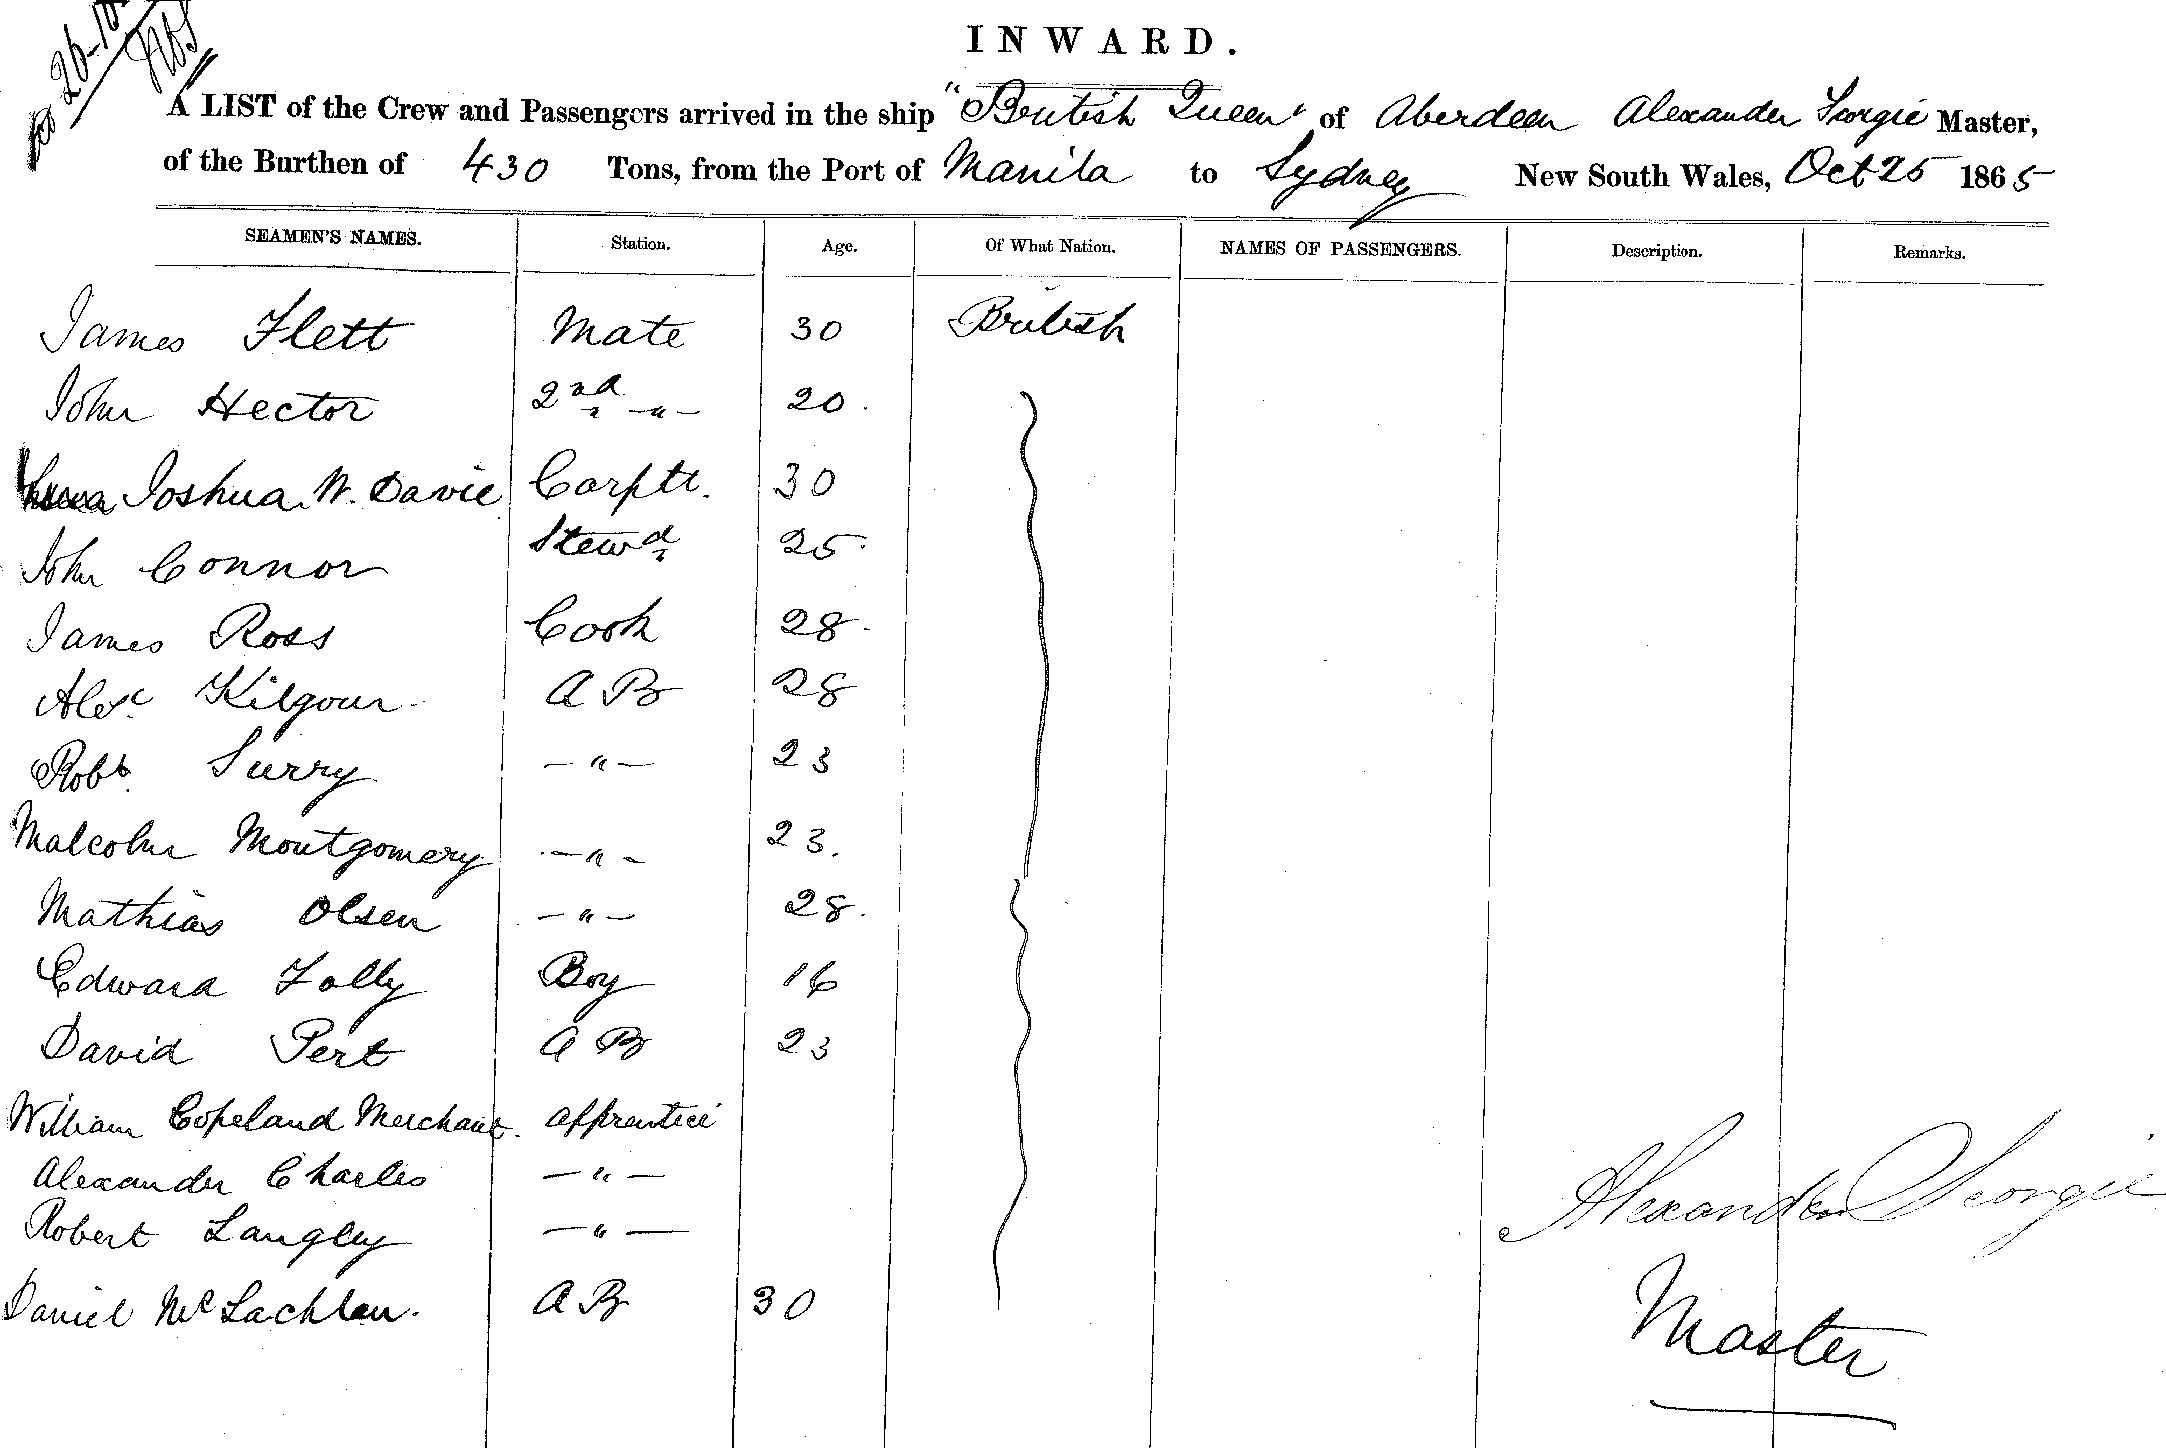 26-10
INWARD.
A LIST of the Crew and Passengers arrived in the ship "British Queen" of Aberdeen Alexander Georgie Master,
of the Burthen of 430 Tons, from the Port of Manila to Sydney New South Wales, Oct 25 1865
SEAMEN'S NAMES. Station. Age. Of What Nation. NAMES OF PASSENGERS. Description. Remarks.
James Flett Mate 30 British
John Hector 2nd -"- 20.
Joshua. W. Davie Carptr. 30
John Connor Stewd 25.
James Ross Cook 28.
Alexr Kilgour. A B 28
Robt. Surry -"- 23
Malcolm Montgomery -"- 23.
Mathias Olsen -"- 28.
Edward Folly Boy 16
David Pert A B 23
William Copeland Merchant. apprentice
Alexander Charles -"-
Robert Langley -"-
Daniel McLachlan. A B 30
Alexander Georgie
Master